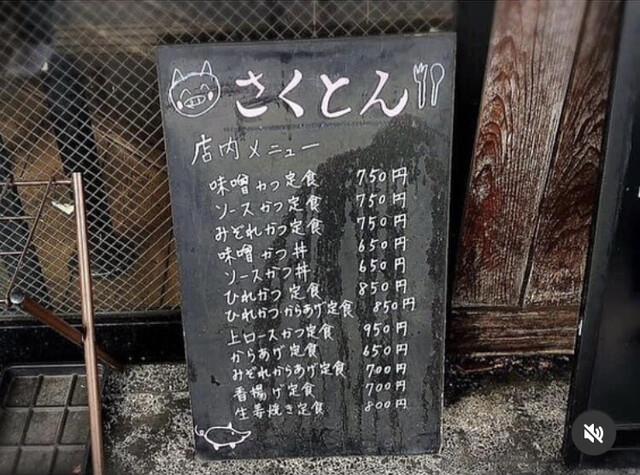 さくとん
店内メニュー
味噌かつ定食 750円
ソースかつ定食 750円
みぞれかつ定食 750円
味噌かつ丼 650円
ソースかつ丼 650円
ひれかつ定食 850円
ひれかつからあげ定食 850円
上ロースかつ定食 950円
からあげ定食 650円
みぞれからあげ定食 700円
香揚げ定食 700円
生姜焼き定食 800円